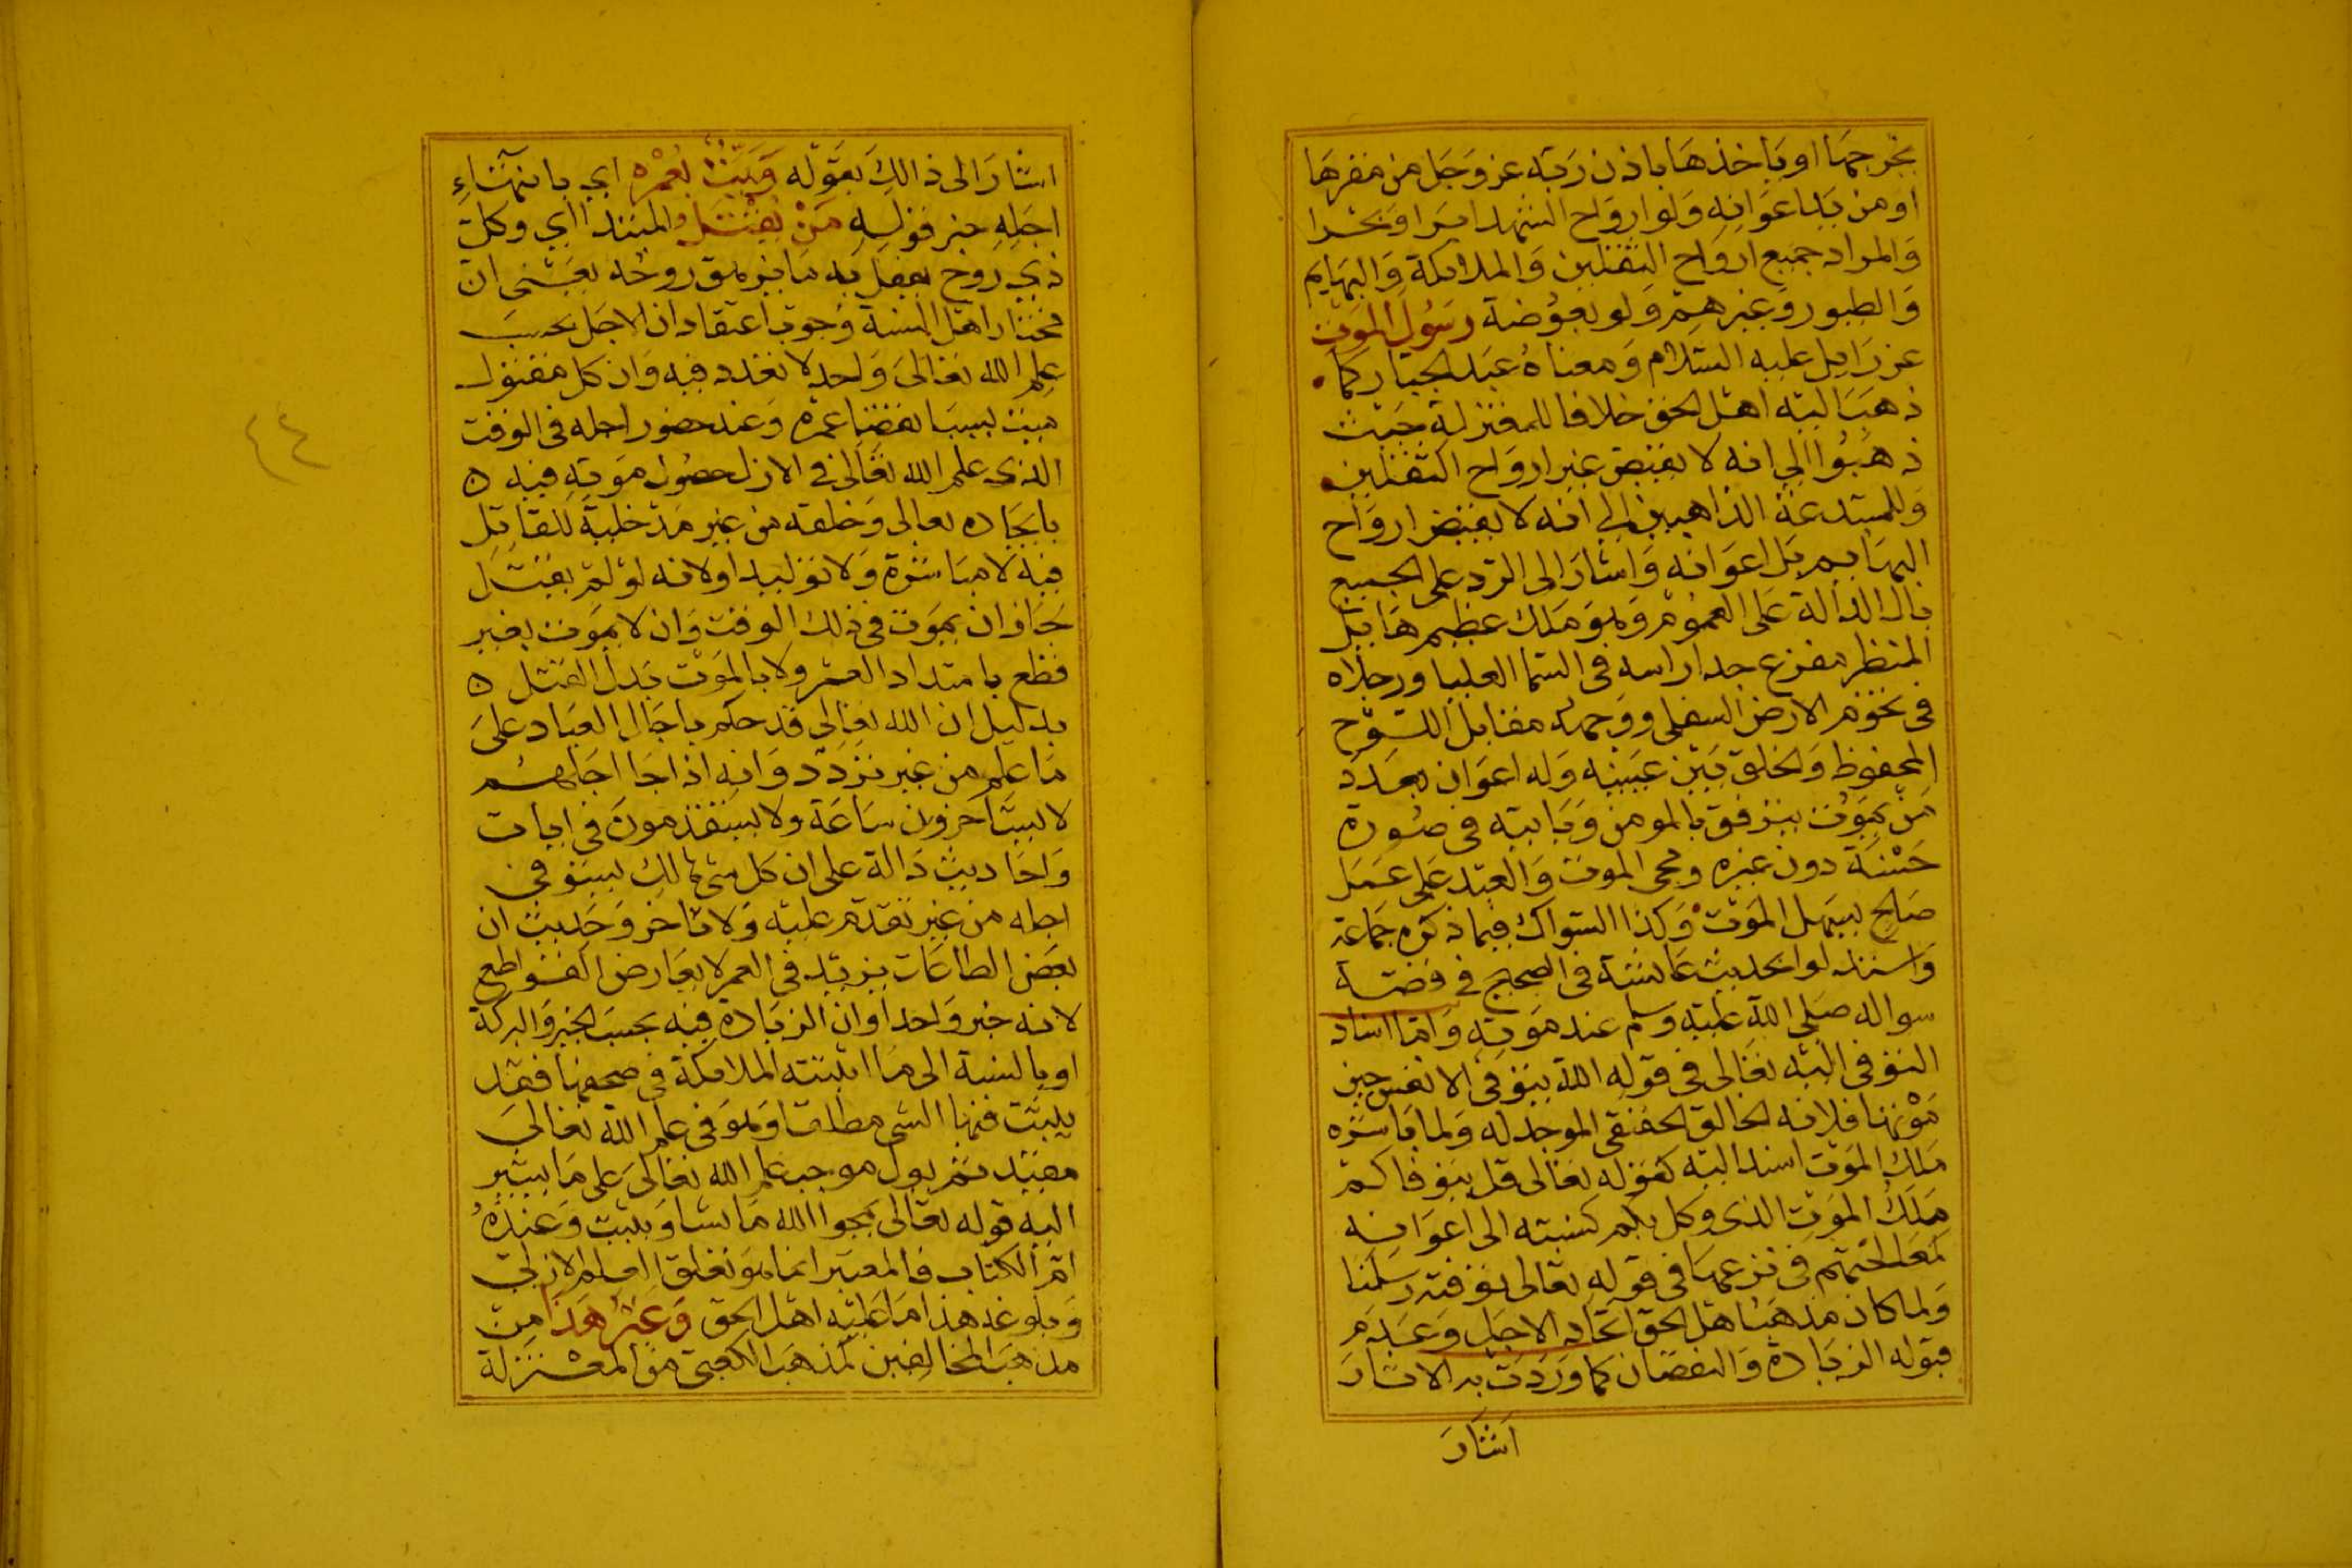 يخرجها او ياخذها باذن ربه عز وجل من مقرها
او من يد اعوانه ولو ارواح الشهدا برا وبحرا
والمراد جميع ارواح الثقلين والملائكة والبهايم
والطيور وغيرهم ولو بعوضة رسول الموت
عزرايل عليه السلام ومعناه عبد الجبار كما
ذهب اليه اهل الحق خلافا للمعتزلة حيث
ذهبوا الي انه لا يقبض غير ارواح الثقلين
وللمبتدعة الذاهبين الي انه لا يقبض ارواح
البهايم بل اعوانه واشار الى الرد على الجميع
بال الدالة على العموم وهو ملك عظيم هايل
المنظر مفزع جدا راسه في السما العليا ورجلاه
في تخوم الارض السفلى ووجهه مقابل اللوح
المحفوظ والخلق بين عينيه وله اعوان بعدد
من يموت يترفق بالمومن وياتيه في صورة
حسنة دون غيره ومجى الموت والعبد على عمل
صالح يسهل الموت وكذا السواك فيما ذكره جماعة
واستدلوا بحديث عائشة في الصحيح في قصة
سواكه صلى الله عليه وسلم عند موته واما اسناد
التوفى اليه تعالى في قوله الله يتوفى الانفس حين
موتها فلانه الخالق الحقيقى الموجد له ولما باشره
ملك الموت اسند اليه كقوله تعالى قل يتوفاكم
ملك الموت الذى وكل بكم كنسبته الى اعوانه
لمعالجتهم في نزعها في قوله تعالى توفته رسلنا
ولما كان مذهب اهل الحق اتحاد الاجل وعدم
قبوله الزيادة والنقصان كما وردت به الاثار
اشار
اشار الى ذالك بقوله وميت بعمره اي بانتهاء
اجله خبر قوله من يقتل والمبتدا اي وكل
ذي روح يفعل به ما يزهق روحه يعنى ان
مختار اهل السنة وجوب اعتقاد ان الاجل بحسب
علم الله تعالى واحد لا تعدد فيه وان كل مقتول
ميت بسبب انقضا عمره وعند حضور اجله في الوقت
الذى علم الله تعالى في الازل حصول موته فيه ه
بايجاده تعالى وخلقه من غير مدخلية للقاتل
فيه لا مباشرة ولا توليدا ولانه لو لم يقتل
جاز ان يموت في ذلك الوقت وان لا يموت بغير
قطع بامتداد العمر ولا بالموت بدل القتل ه
بدليل ان الله تعالى قد حكم باجال العباد على
ما علم من غير تردد وانه اذا جا اجلهم
لا يستاخرون ساعة ولا يستقدمون في ايات
واحاديث دالة على ان كل شي هالك يستوفى
اجله من غير تقدم عليه ولا تاخر وحديث ان
بعض الطاعات يزيد في العمر لا يعارض القواطع
لانه خبر واحد او ان الزيادة فيه بحسب الخير والبركة
او بالنسبة الى ما اثبتته الملائكة في صحفها فقد
يثبت فيها الشى مطلقا وهو في علم الله تعالى
مقيد ثم يول موجب علم الله تعالى على ما يشير
اليه قوله تعالى يمحوا الله ما يشا ويثبت وعنده
ام الكتاب فالمعتبر انما هو تعلق العلم الازلي
وبلوغه هذا ما عليه اهل الحق وغير هذا من
مذهب المخالفين كمذهب الكعبي من المعتزلة
٤٤